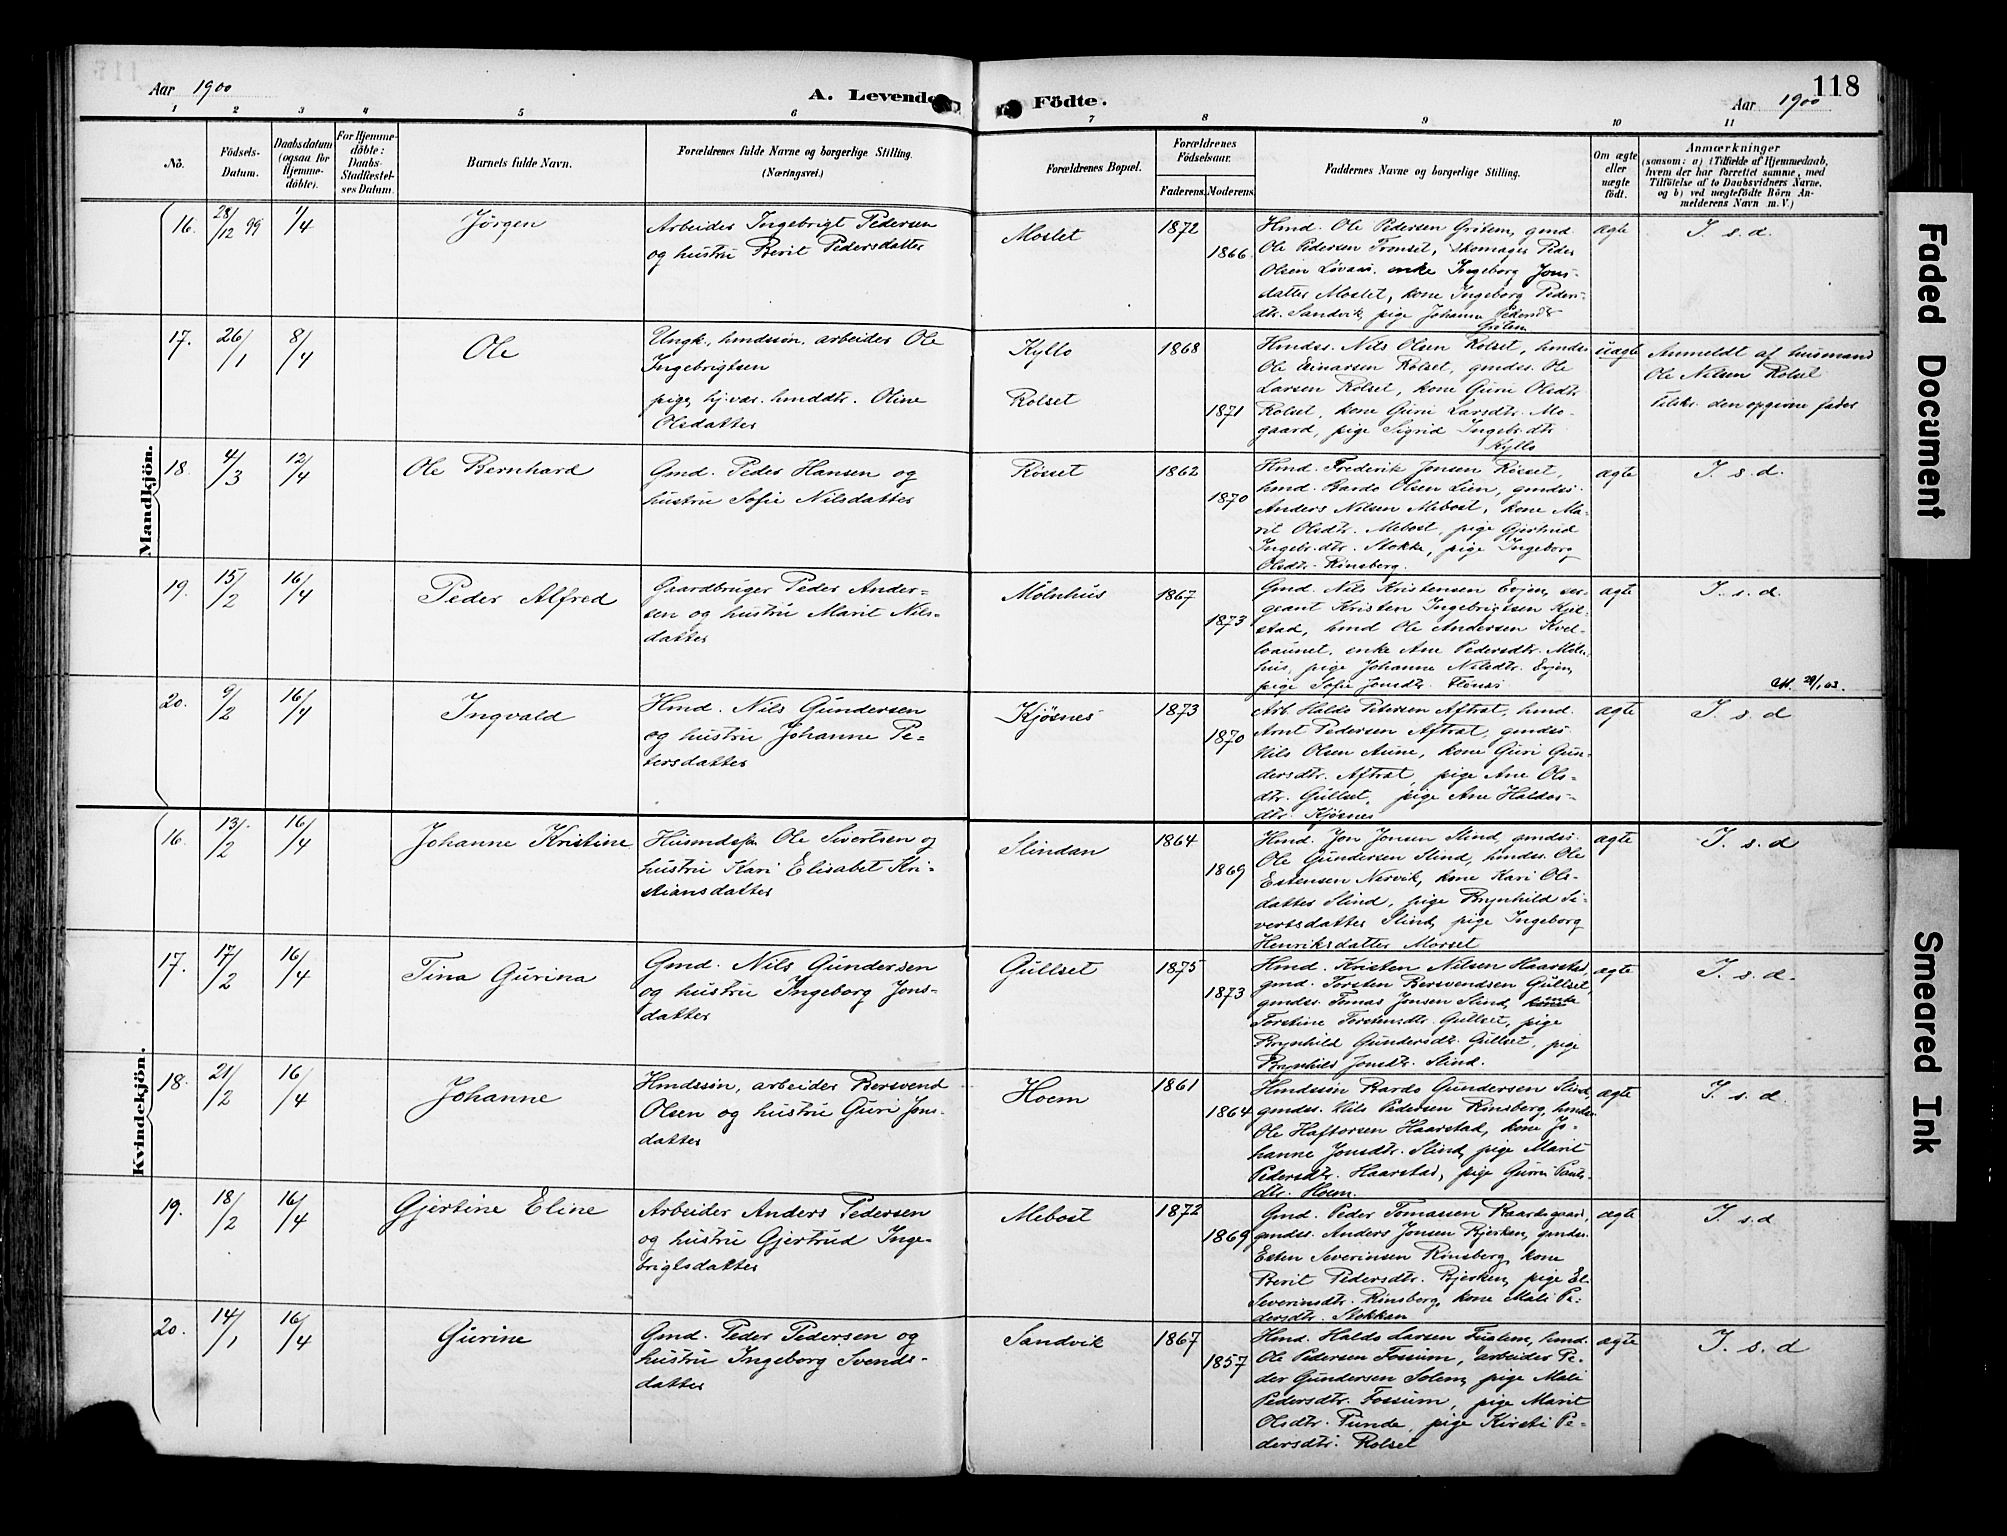 118
Aar 1900
A. Levende Födte.
Aar 1900
1 2 3 4 5 6 7 8 9 10 11
No.
Födsels-Datum.
Daabsdatum (ogsaa for Hjemme-döbte).
For Hjemme-döbte: Daabs-Stadfæstel-ses Datum.
Barnets fulde Navn.
Forældrenes fulde Navne og borgerlige Stilling. (Næringsvei.)
Forældrenes Bopæl.
Forældrenes Födselsaar.
Faderens. Moderens.
Faddernes Navne og borgerlige Stilling.
Om ægte eller uægte födt.
Anmærkninger
(saasom: a) i Tilfælde af Hjemmedaab, hvem der har forrettet samme, med Tilföielse af to Daabsvidners Navne, og b) ved uægtefödte Börn An-melderens Navn m. V.)
Mandkjön.
16. 28/12 99 1/4 Jörgen
Arbeider Ingebrigt Pedersen
og hustru Berit Pedersdatter
Moslet 1872 1866
Hmd. Ole Pedersen Gritem, gmd.
Ole Pedersen Tronset, skomager Peder
Olsen Lövaas, enke Ingeborg Jons-
datter Moslet, kone Ingeborg Peders-
dtr. Sandvik, pige Johanne Pedersdtr
Gritem
ægte I. s. d.
17. 26/1 8/4 Ole
Ungk., hmdssön, arbeider Ole
Ingebrigtsen
pige, hj. vær. hmddtr. Oline
Olsdatter
Kyllo
Rolset
1868 1871
Hmdss. Nils Olsen Rolset, hmdss
Ole Einarsen Rolset, gmdss. Ole
Larsen Rolset, kone Guri Olsdtr.
Rolset, kone Guri Larsdtr. Mo-
gaard, pige Sigrid Ingebr.dtr.
Kyllo
uægte
Anmeldt af husmand
Ole Nilsen Rolset
tilsk. den opgivne fader
18. 4/3 12/4 Ole Bernhard
Gmd. Peder Hansen og
hustru Sofie Nilsdatter
Rösset 1862 1870
Hmd. Frederik Jonsen Rösset,
hmd. Bardo Olsen Lien, gmdss.
Anders Nilsen Mebost, kone Ma-
rit Olsdtr. Mebost, pige Gjertrud
Ingebr.dtr. Stokke, pige Ingeborg
Olsdtr. Rinsberg.
ægte I. s. d.
19. 15/2 16/4 Peder Alfred
Gaardbruger Peder Ander-
sen og hustru Marit Nils-
datter
Mölnhus 1867 1873
Gmd. Nils Kristensen Evjen, ser-
geant Kristen Ingebrigtsen Kjel-
stad, hmd Ole Andersen Kvel-
loaunet, enke Ane Pedersdtr. Möln-
hus, pige Johanne Nilsdtr. Evjen,
pige Sofie Jonsdtr.
ægte I. s. d.
29/1 03.
20. 9/2 16/4 Ingvald
Hmd. Nils Gundersen
og hustru Johanne Pe-
tersdatter
Kjösnes 1873 1870
Arb. Haldo Petersen Aftret, hmd.
Arnt Pedersen Aftret, gmdss.
Nils Olsen Aune, kone Guri Gun-
dersdtr. Aftret, pige Ane Ols-
dtr. Gullset, pige Ane Haldos-
dtr. Kjösnes
ægte I. s. d
Kvindekjön.
16. 13/2 16/4 Johanne Kristine
Husmdsfk Ole Sivertsen og
hustru Kari Elisabet Kri-
stiansdatter
Slindan 1864 1869
Hmd. Jon Jonsen Slind, gmdss.
Ole Gundersen Slind, hmdss. Ole
Estensen Nervik, kone Kari Ols-
datter Slind, pige Brynhild Si-
vertsdatter Slind, pige Ingeborg
Henriksdatter Morset
ægte I. s. d
17. 17/2 16/4 Tina Gurina
Gmd. Nils Gundersen
og hustru Ingeborg Jons-
datter
Gullset 1875 1873
Hmd. Kristen Nilsen Haarstad,
gmd. Torsten Bersvendsen Gullset,
gmdss. Tomas Jonsen Slind,
Torstine Torstensdtr. Gullset, pige
Brynhild Gundersdtr. Gullset, pige
Brynhild Jonsdtr. Slind.
ægte I. s. d.
18. 21/2 16/4 Johanne
Hmdssön, arbeider Bersvend
Olsen og hustru Guri Jons-
datter
Hoem 1861 1864
Hmdssön Bardo Gundersen Slind,
gmdss. Nils Pedersen Rinsberg, hmdss
Ole Haftorsen Haarstad, kone Jo-
hanne Jonsdtr. Slind, pige Marit
Pedersdtr. Haarstad, pige Guri Pauls-
dtr. Hoem.
ægte I. s. d.
19. 18/2 16/4 Gjertine Eline
Arbeider Anders Pedersen
og hustru Gjertrud Inge-
brigtsdatter
Mebost 1872 1869
Gmd. Peder Tomassen Baardsgaard,
gmdss. Anders Jonsen Bjerken, gmdss.
Esten Severinsen Rinsberg, kone
Berit Pedersdtr. Bjerken, pige El.
Severinsdtr. Rinsberg, kone Mali Pe-
dersdtr. Stokkan
ægte I. s. d
20. 14/1 16/4 Gurine
Gmd. Peder Pedersen og
hustru Ingeborg Svends-
datter
Sandvik 1867 1857
Hmd. Haldo Larsen Fuglem, hmd.
Ole Pedersen Fossum, arbeider Pe-
der Gundersen Solem, pige Mali
Pedersdtr. Fossum, pige Marit
Olsdtr. Tunde, pige Kirsti Pe-
dersdtr. Rolset
ægte I. s. d
Faded Document
Smeared Ink